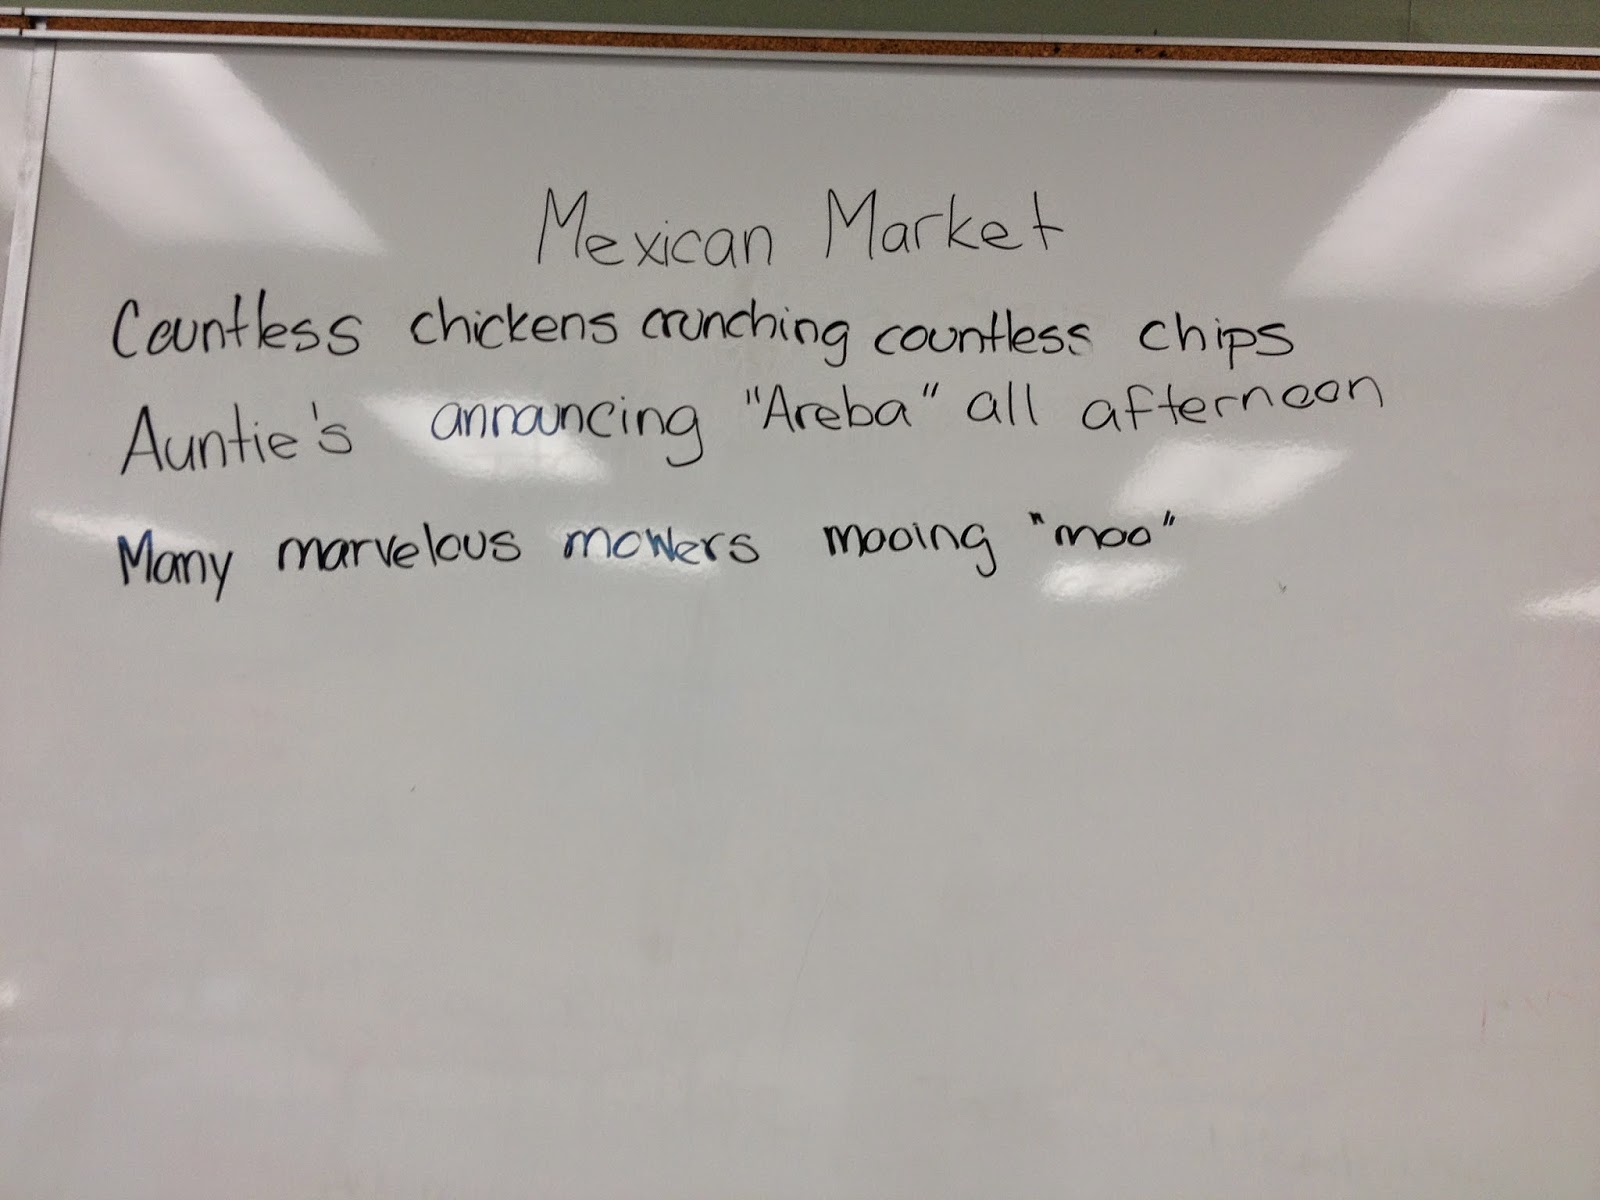 Mexican Market
Countless chickens crunching countless chips
Auntie's announcing "Areba" all afternoon
Many marvelous mowers mooing "moo"